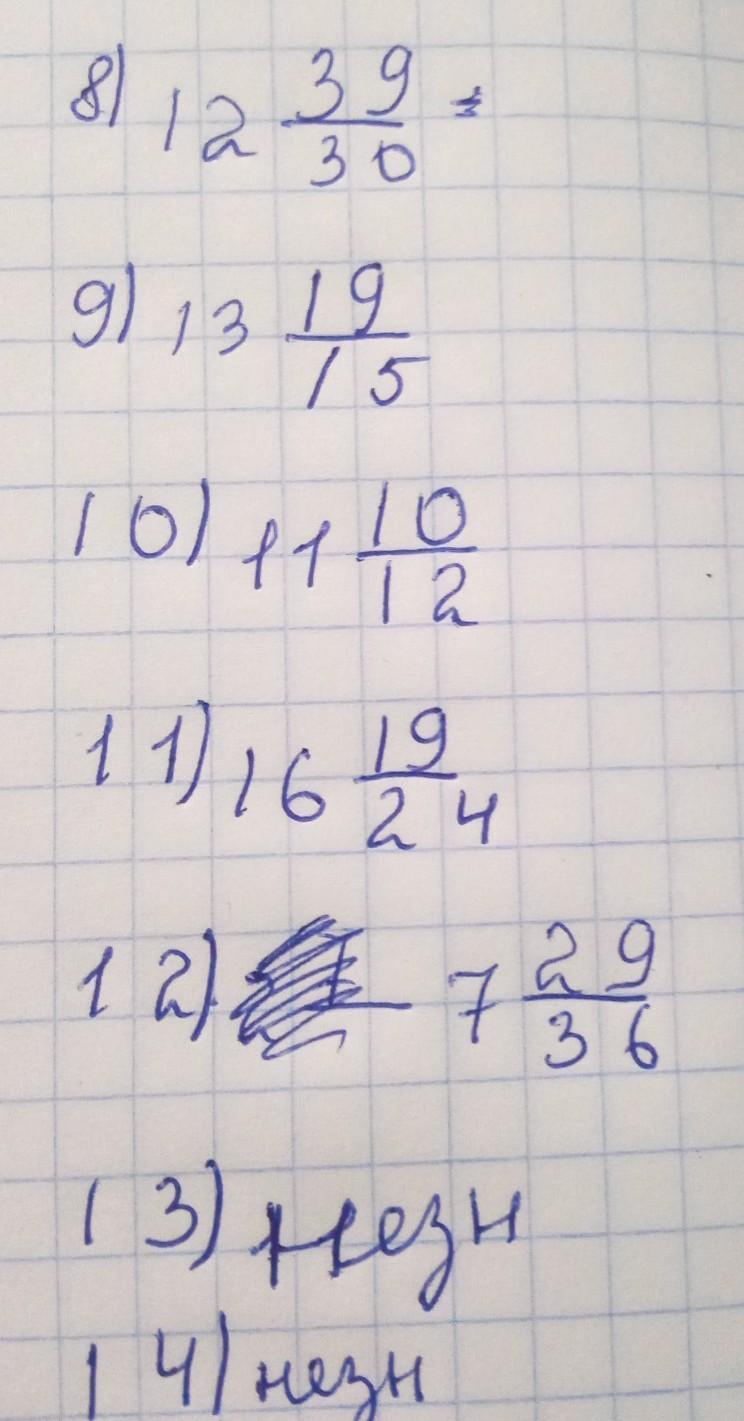 8) 12 39/30 =
9) 13 19/15
10) 11 10/12
11) 16 19/24
12) 7 29/36
13) незн
14) незн